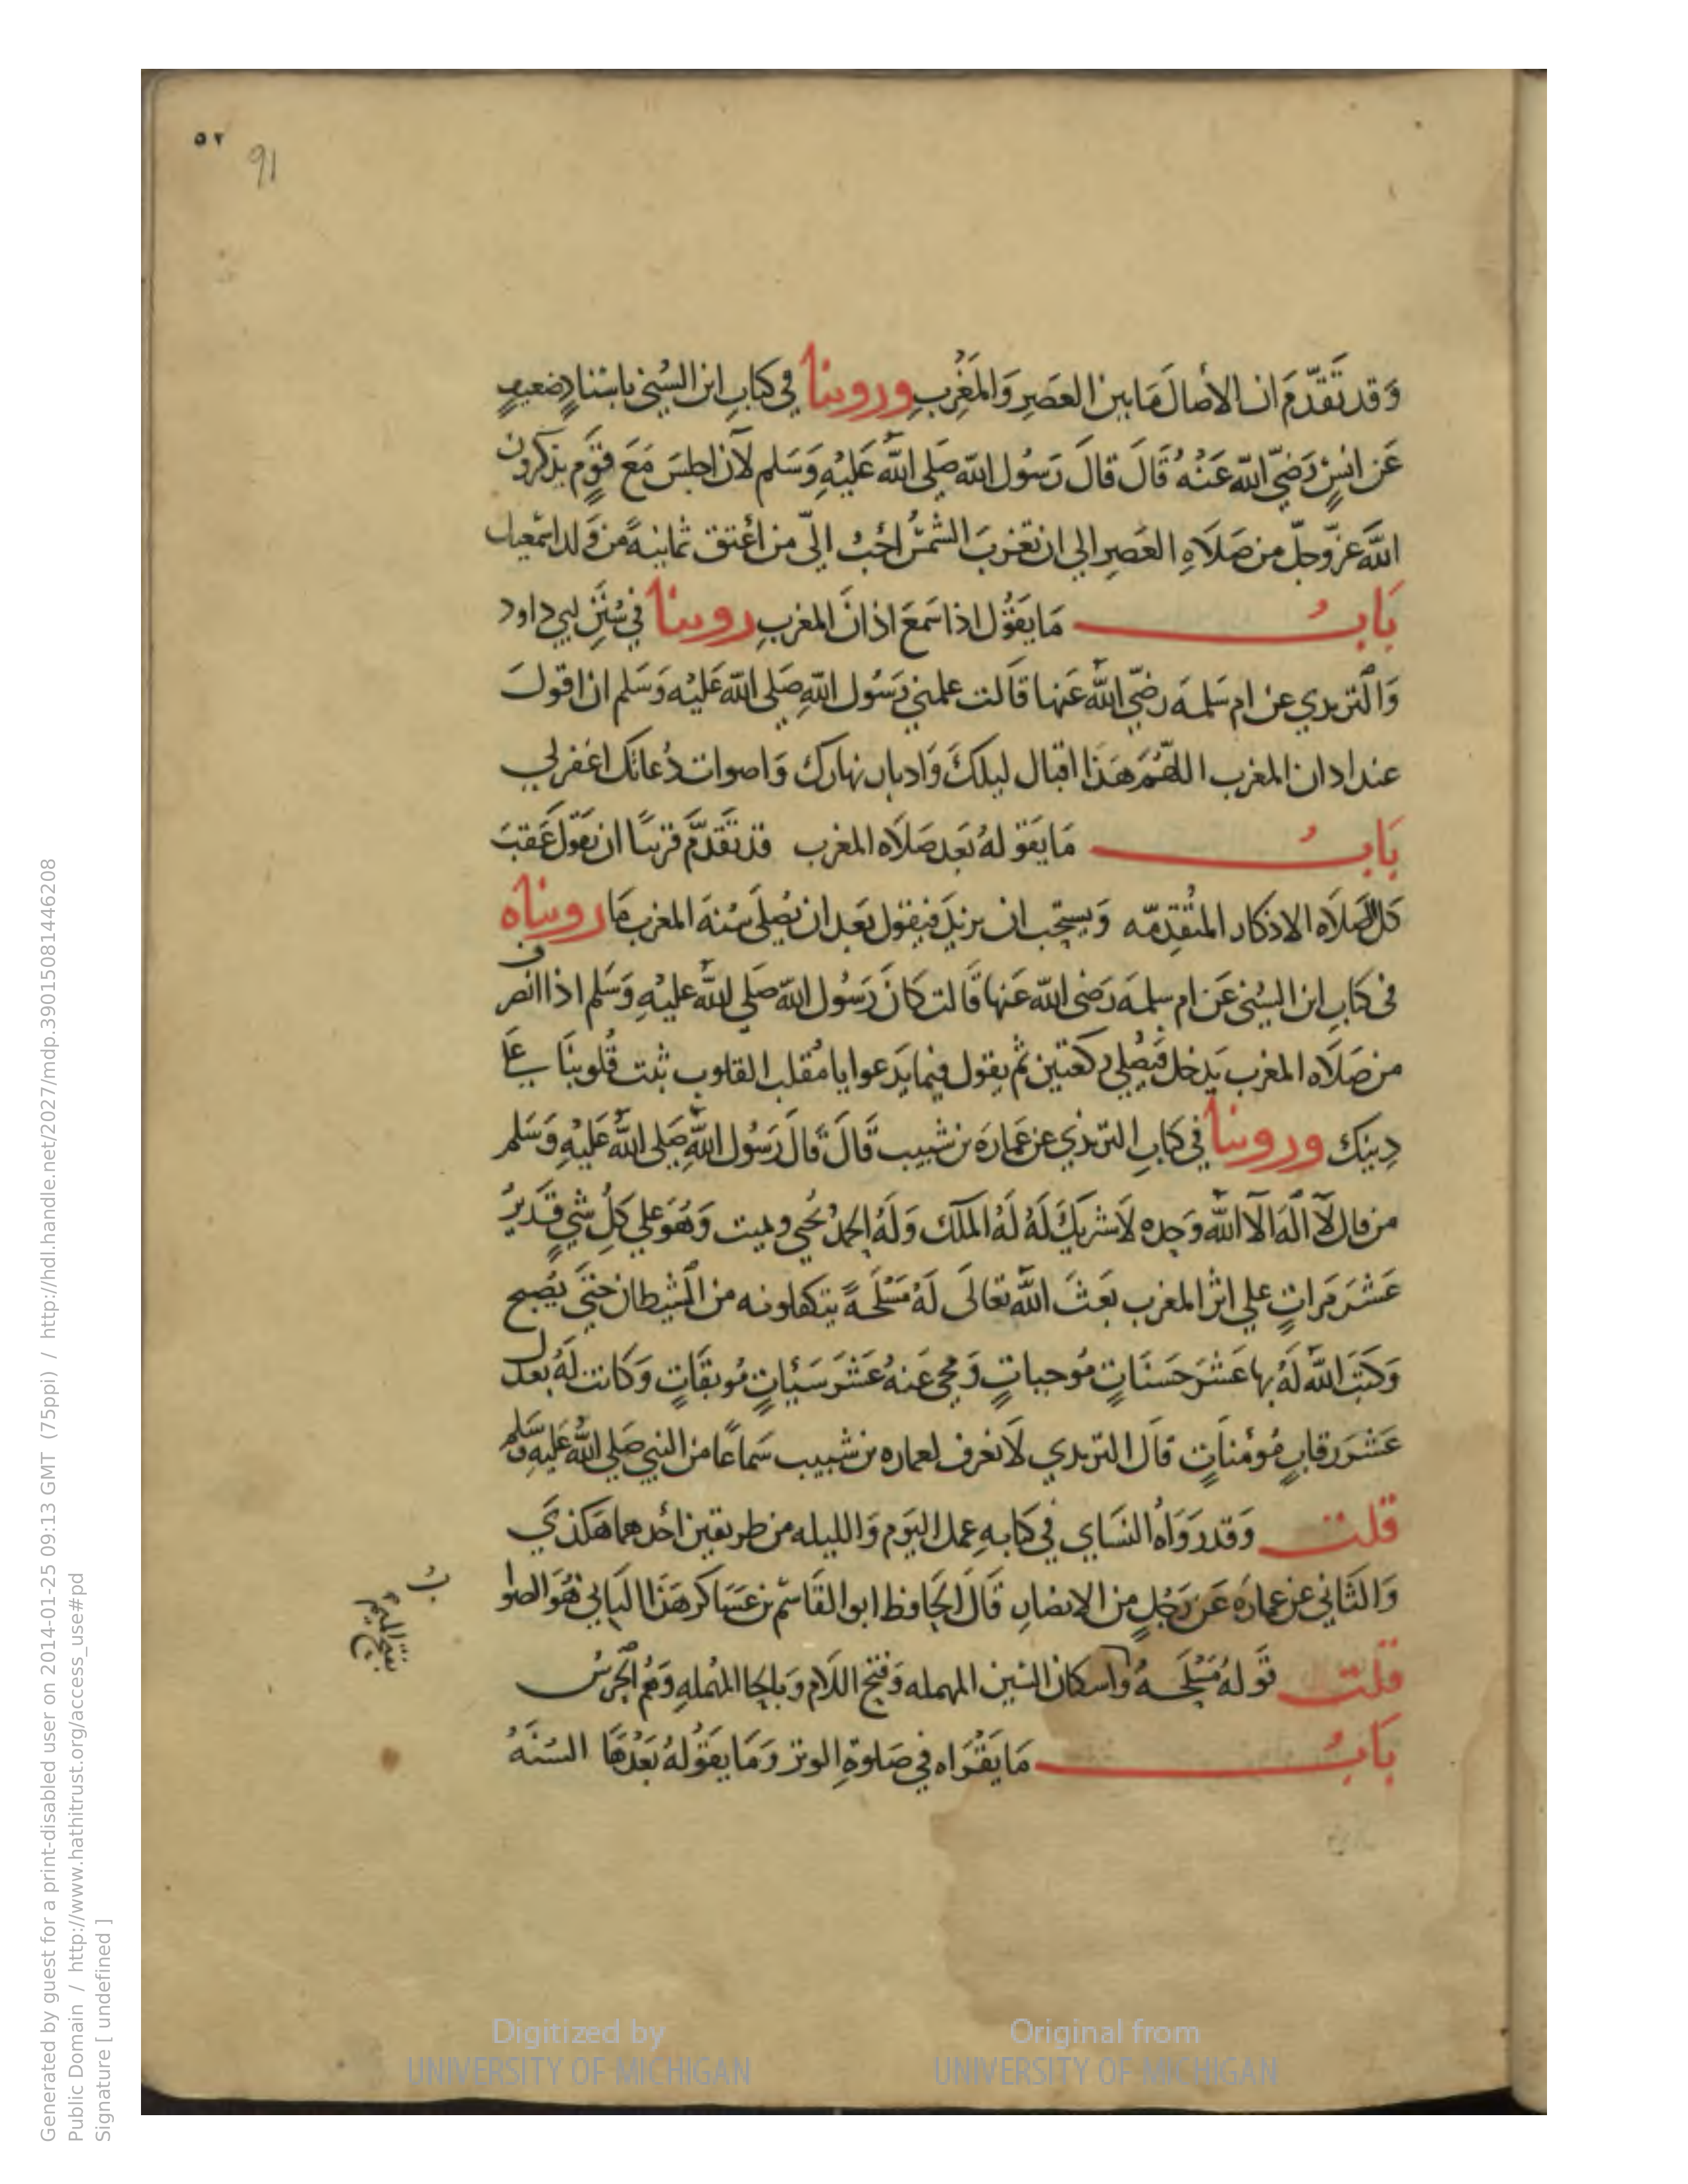 ٥٢
91
وَقد تَقَدّمَ ان الأصالَ مَا بين العَصرِ وَالمَغرِبِ وروينا في كتابِ ابن السُني باسنادٍ ضعيفٍ
عَن انسٍ رَضيَ اللّه عَنْهُ قَالَ قالَ رَسُول اللّه صَلى اللّه عَليْهِ وَسَلم لأن اجلسَ مَعَ قومٍ يذكرون
اللّهَ عزّ وجلّ من صَلاَهِ العَصرِ الي ان تغربَ الشمسُ احَبُ اليّ من أعْتق ثمانيةً من وَلد اسمعيل
بَابُ مَا يَقوُل اذا سَمعَ اذانَ المغربِ روينا في سُنَنِ ابي داود
وَالترمدي عن ام سَلمه رَضيَ اللّه عَنها قَالت علمني رَسُول اللّهِ صَلى اللّه عَليْه وَسَلم ان اقولَ
عند ادان المغرب اللّهُمَ هَذا اقبال ليلكَ وَادبار نهارك وَاصوات دُعاتك اغفرلي
بَابُ مَا يَقولهُ بَعد صَلاَه المغرب قد تَقدّمَ قريبًا ان يَقول عَقبَ
كل الصَلاَه الاذكار المتُقدِمّه وَيستحِب ان يزيدَ فيقول بَعد ان يُصلي سُنهَ المغرب مَا رويناه
في كتابِ ابن السُني عَن ام سلمه رَضي اللّه عَنها قَالت كانَ رَسُول اللّه صَلى اللّه عليْهِ وَسَلم اذا انصرف
من صَلاَه المغرب يَدخل فيُصَلي ركعتين ثم يقول فيمَا يَدعوا يا مُقلب القلوب ثبت قُلوبنَا علي
دِينك وروينا في كتابِ الترمذي عن عمَارَه بن شبيب قَالَ قالَ رَسُول اللّهِ صَلى اللّهُ عَليْهِ وَسَلم
من قال لاَ الَه الا اللّه وَحده لاَ شريكَ لَهُ لَهُ الملك وَلَهُ الحمدُ يحُيي ويميت وَهُوَ علي كلِ شيٍ قَديرُ
عَشرَ مَراتٍ علي اثر المغرب بَعثَ اللّه تعَالَى لَهُ مَسْلَحةً يتكفلونه من الشيطان حتىَ يُصبح
وَكتبَ اللّه لَهُ بها عَشرَ حَسنَاتٍ مُوجباتٍ وَمحي عَنهُ عَشرَ سَيئاتٍ مُوبقَاتٍ وَكانت لَهُ بعدل
عَشرَ رقابٍ مُؤمنَاتٍ قالَ الترمدي لاَ نعرف لعماره بن شبيب سَماعًا من النبي صَلى اللّهُ عَليهِ وسَلم
قلت وَقد رَوَاهُ النسَاي في كتابهِ عمل اليَوم وَالليله من طريقين احَدهما هَكذي
وَالثَاني عن عمارَه عَن رَجُلٍ من الانصارِ قَالَ الحَافظ ابو القَاسم بن عَسَاكر هَذا الثاني هُوَ الصواب
قلت قَولهُ مَسْلَحهُ واسكان السين المهمله وَفتح اللام وَبالحا المهملهِ وَهُم الحَرسُ
بفتح الميم
بَابُ مَا يَقُراه في صَلوةِ الوتر وَمَا يقَوُلهُ بَعْدهَا السُنهُ
Digitized by
UNIVERSITY OF MICHIGAN
Original from
UNIVERSITY OF MICHIGAN
Generated by guest for a print-disabled user on 2014-01-25 09:13 GMT (75ppi) / http://hdl.handle.net/2027/mdp.39015081446208
Public Domain / http://www.hathitrust.org/access_use#pd
Signature [ undefined ]